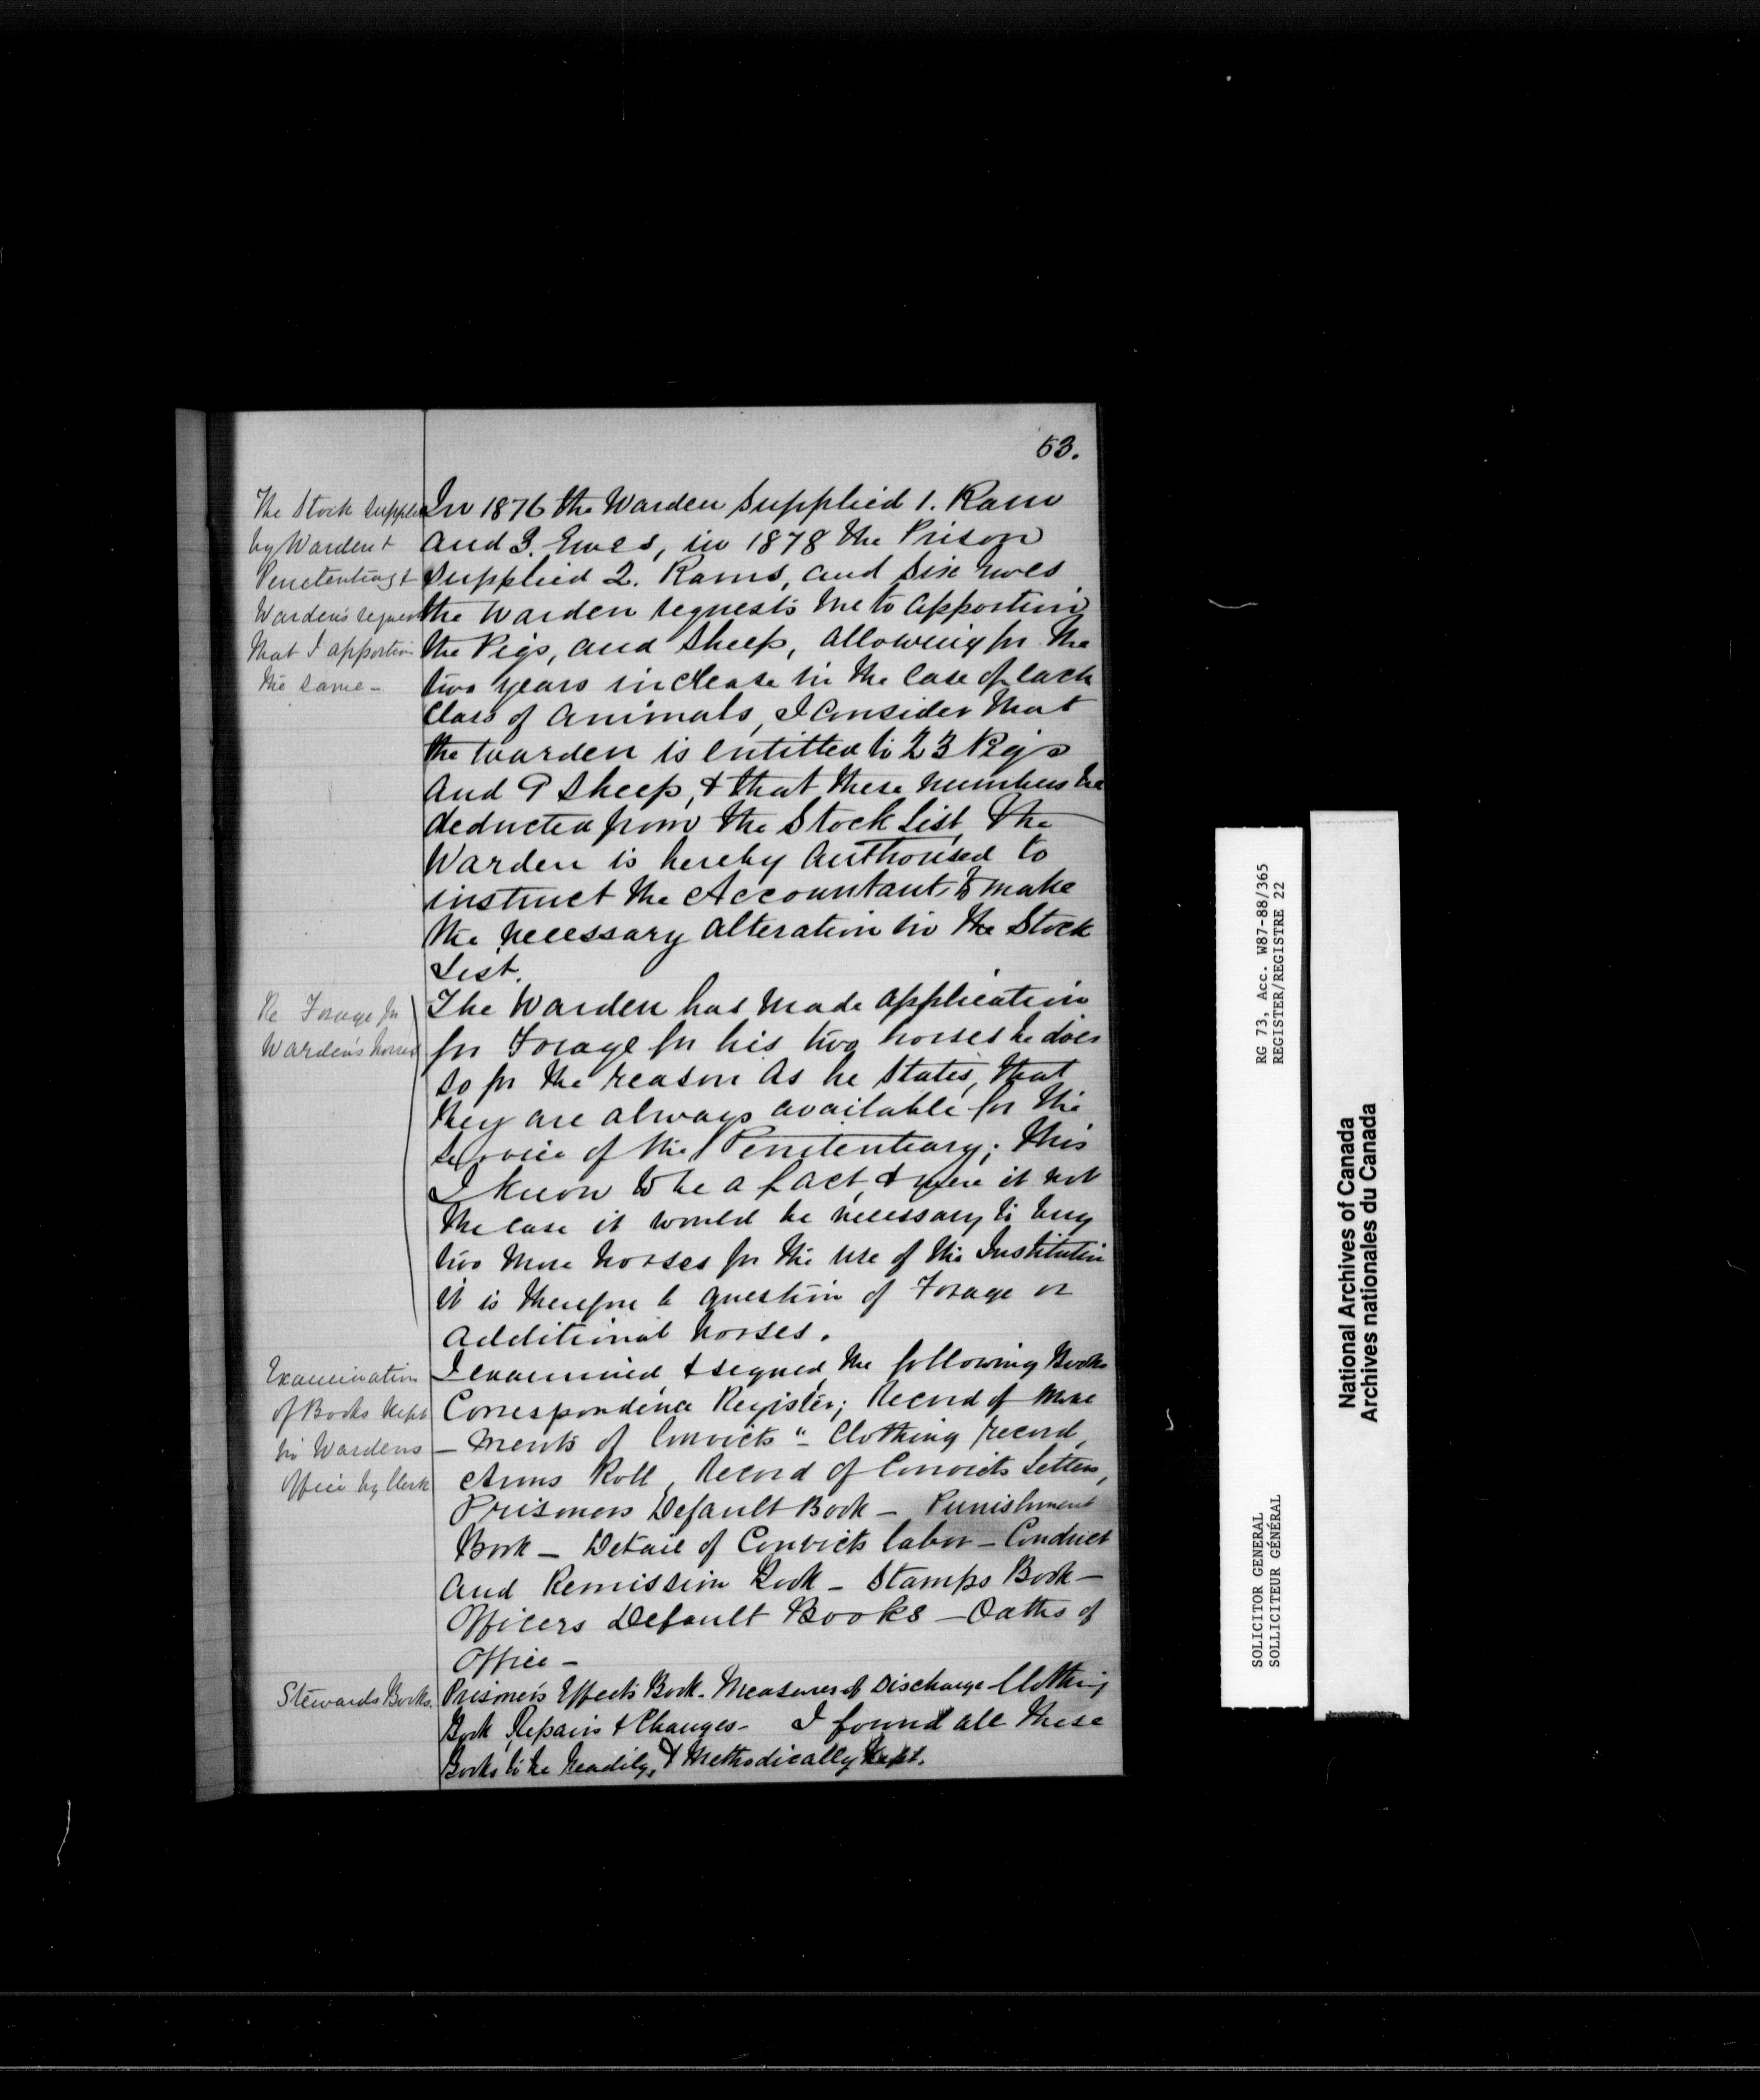 53.
The Stock supplied
by Warden &
Penetentiary &
Warden's request
that I apportion
the same -
In 1876 the Warden supplied 1. Ram
and 3. Ewes, in 1878 the Prison
supplied 2. Rams, and six Ewes
the Warden requests me to apportion
the Pigs, and Sheep, allowing for the
two years increase in the case of each
Class of animals, I consider that
the Warden is entitled to 23 Pigs
and 9 Sheep, & that these numbers be
deducted from the Stock List, The
Warden is hereby authorised to
instruct the Accountant, to make
the necessary alteration in the Stock
List.
Re Forage for
Warden's horses
The Warden has made application
for Forage for his two horses he does
so for the reason as he states, that
they are always available for the
service of the Penetentiary; this
I know to be a fact, & were it not
the case it would be necessary to buy
two more horses for the use of the Institution
it is therefore a question of Forage or
additional horses.
Examination
of Books kept
in Wardens
Office by Clerk
I examined & signed the following Books
Correspondence Register; Record of Move
- ments of Convicts "- Clothing record,
Arms Roll, Record of Convicts Letters,
Prisoners Default Book - Punishment
Book - Detail of Convicts labor - Conduct
and Remission Book - Stamps Book -
Officers Default Books - Oaths of
Office -
Stewards Books.
Prisoners Effects Book. Measures of Discharge Clothing
Book, Repairs & Changes - I found all these
Books to be neatly, & methodically kept.
RG 73, Acc. W87-88/365
REGISTER/REGISTRE 22
SOLICITOR GENERAL
SOLLICITEUR GÉNÉRAL
National Archives of Canada
Archives nationales du Canada